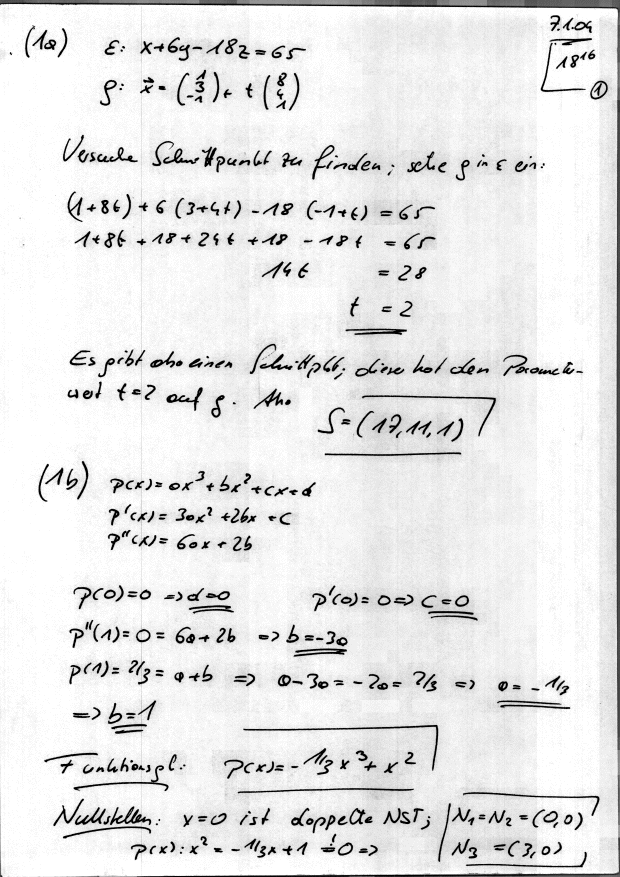 7.1.04
18¹⁶
①
(1a) ε: x+6y-18z=65
g: x⃗ = (1 3 -1) + t (8 4 1)
Versuche Schnittpunkt zu finden; setze g in ε ein:
(1+8t)+6(3+4t)-18(-1+t)=65
1+8t+18+24t+18-18t=65
14t=28
t=2
Es gibt also einen Schnittpkt; dieser hat den Parameter-
wert t=2 auf g. Also S=(17,11,1)
(1b) p(x)=ax³+bx²+cx+d
p'(x)=3ax²+2bx+c
p''(x)=6ax+2b
p(0)=0 => d=0 p'(0)=0 => c=0
p''(1)=0=6a+2b => b=-3a
p(1)=2/3=a+b => a-3a=-2a=2/3 => a=-1/3
=> b=1
Funktionsgl: p(x)=-1/3x³+x²
Nullstellen: x=0 ist doppelte NST; N₁=N₂=(0,0)
p(x):x²=-1/3x+1 != 0 => N₃=(3,0)